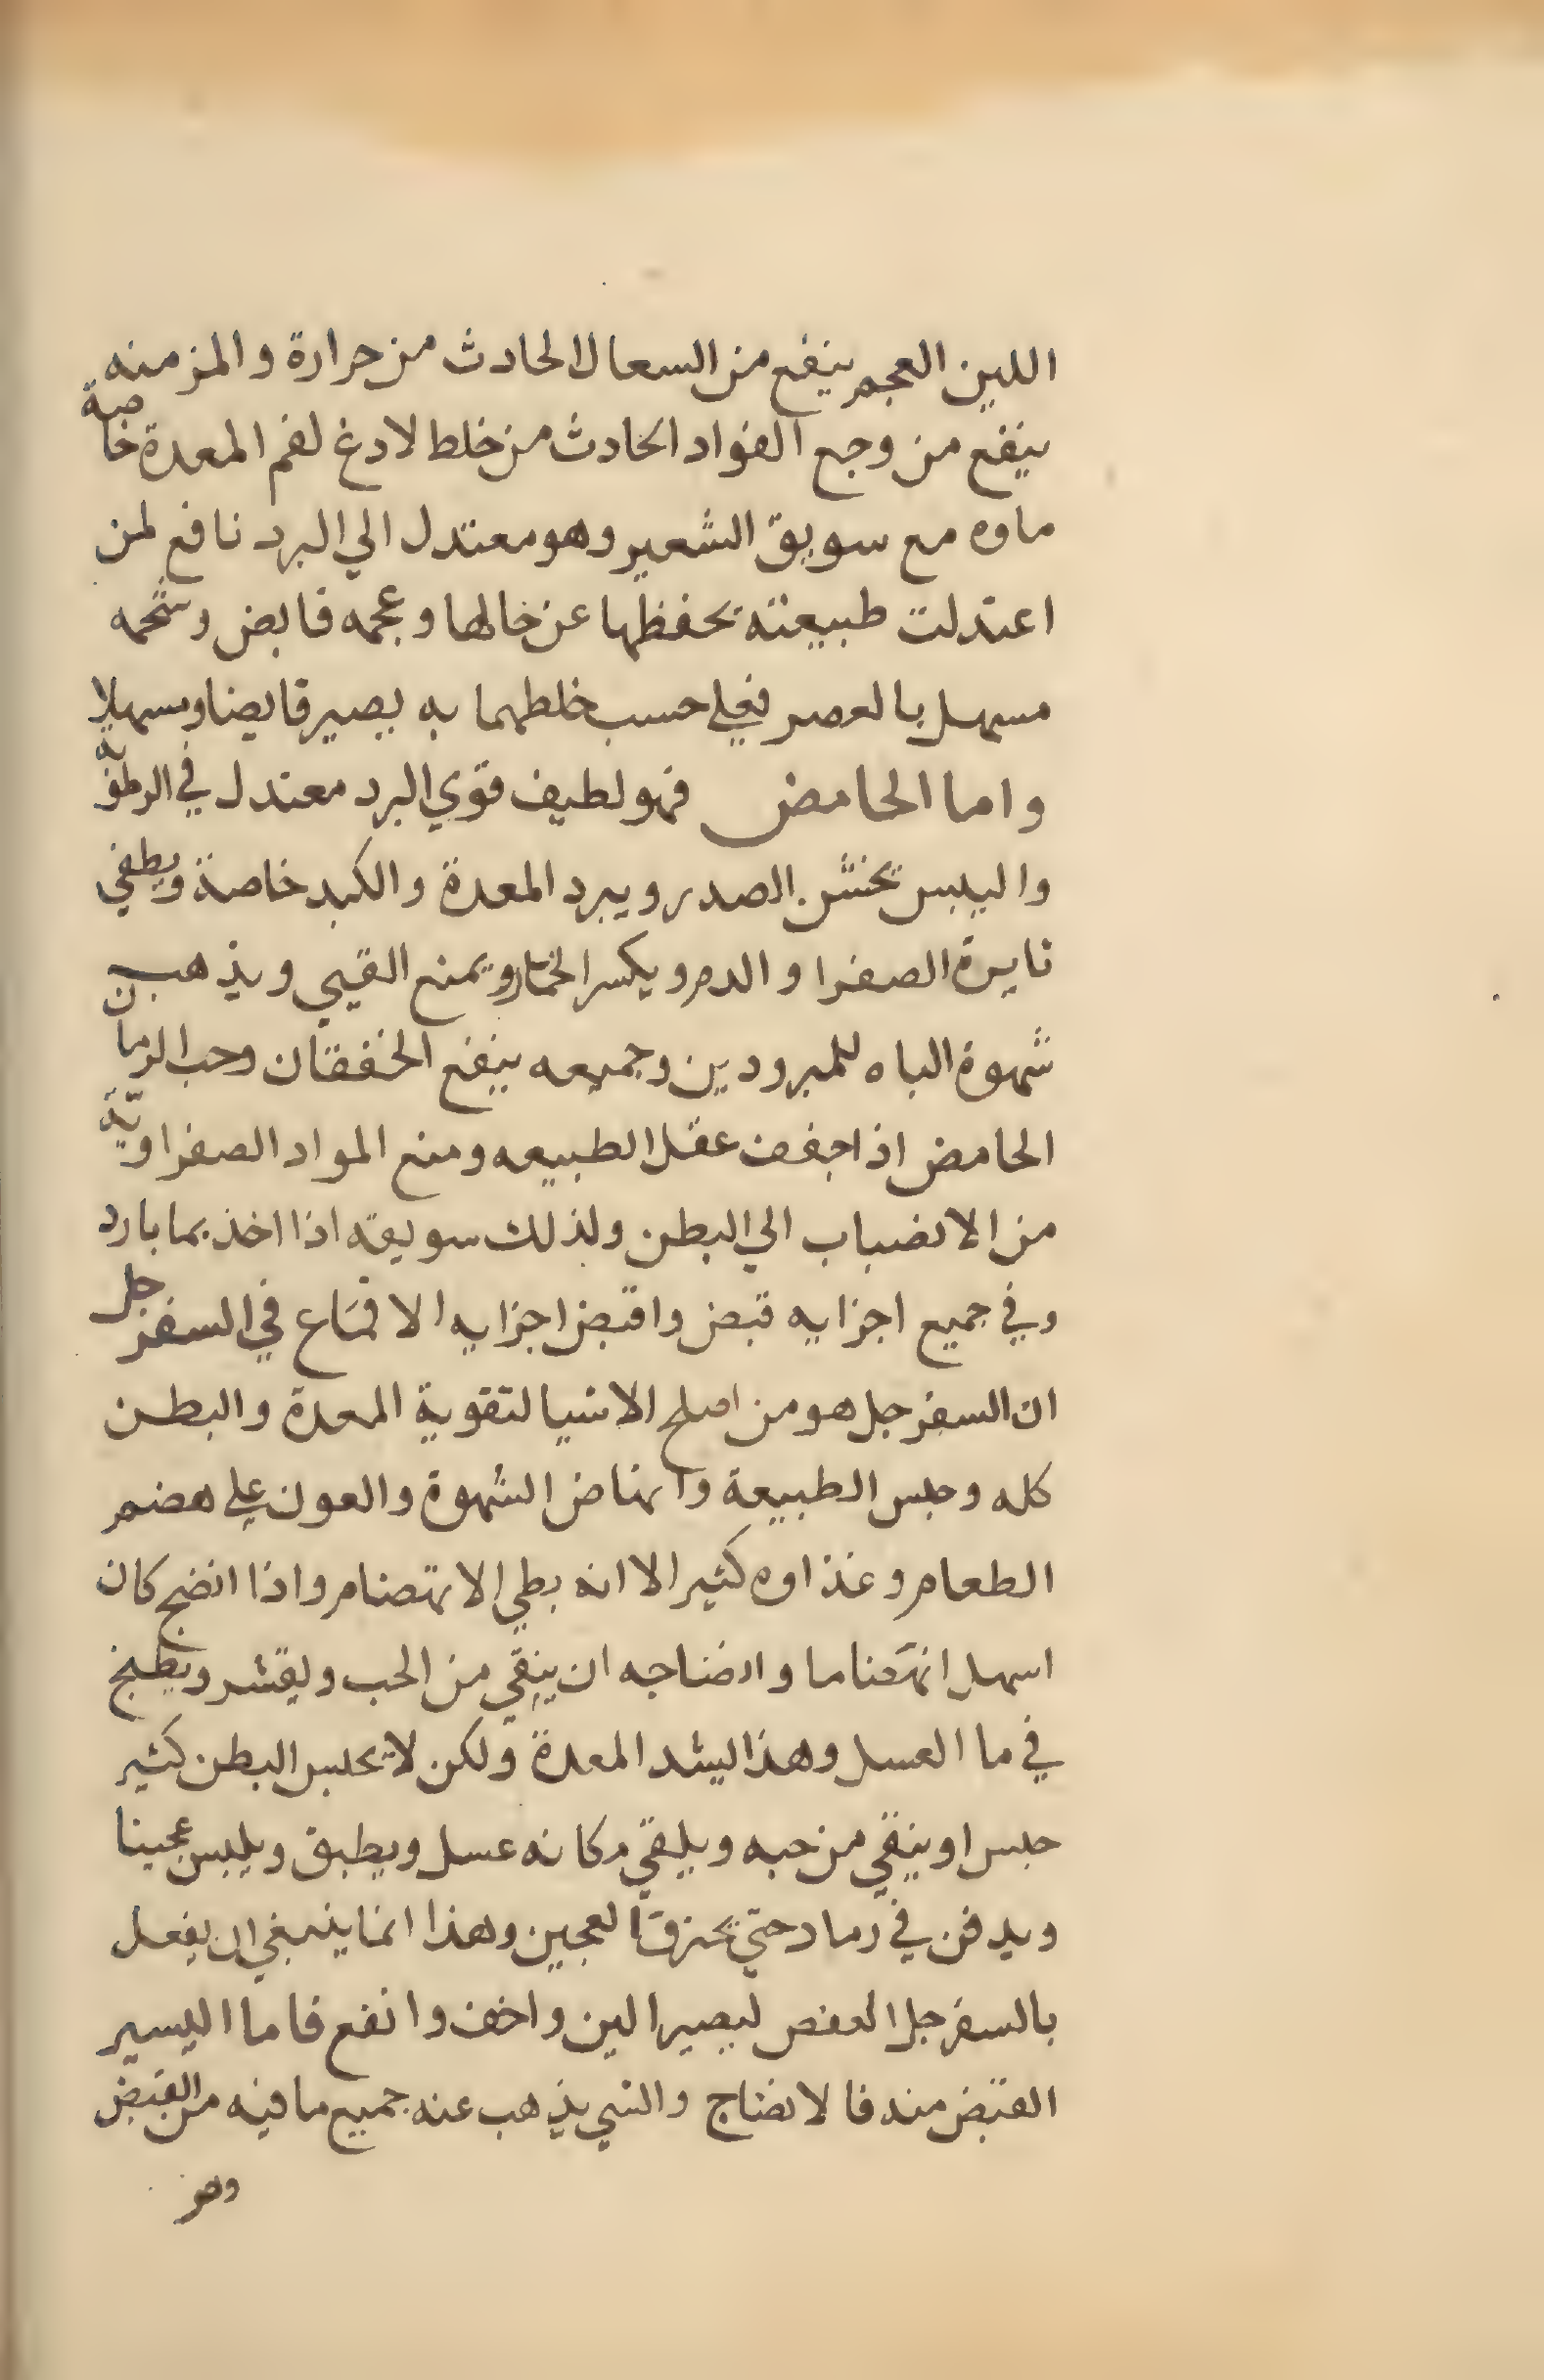 اللين العجم ينفع من السعال الحادث من حرارة والمز منه
ينفع من وجع الفواد الحادث من خلط لادغ لفم المعدة خاصة
ماوه مع سويق الشعير وهو معتدل الي البرد نافع لمن
اعتدلت طبيعته يحفظها عن حالها وعجمه قابض وشحمه
مسهل بالعصر فعلي حسب خلطهما به يصير قابضا ومسهلا
واما الحامض فهو لطيف قوي البرد معتدل في الرطوبة
واليبس يخشن الصدر ويبرد المعدة والكبد خاصة ويطفي
نايرة الصفرا والدم ويكسر الخمار ويمنع القيي ويذهب
شهوة الباه للمبرودين وجميعه ينفع الخفقان وحب الرمان
الحامض اذا جفف عقل الطبيعه ومنع المواد الصفراوية
من الانصباب الي البطن ولذلك سويقه اذا اخذ بما بارد
وفي جميع اجزايه قبض واقبض اجزايه الاقماع في السفرجل
ان السفرجل هو من اصلح الاشيا لتقوية المعدة والبطن
كله وحبس الطبيعة وانهاض الشهوة والعون علي هضم
الطعام وغذاوه كثير الا انه بطي الانهضام واذا انضج كان
اسهل انهضاما وانضاجه ان ينقي من الحب ويقشر ويطبخ
في ما العسل وهذا يشد المعدة ولكن لا يحبس البطن كثير
حبس او ينقي من حبه ويلقي مكانه عسل ويطبق ويلبس عجينا
ويدفن في رماد حتي يحترق العجين وهذا انما ينبغي ان يفعل
بالسفرجل العفص ليصير الين واخف وانفع فاما اليسير
القبض منه فالانضاج والشي يذهب عنه جميع ما فيه من القبض
وهو